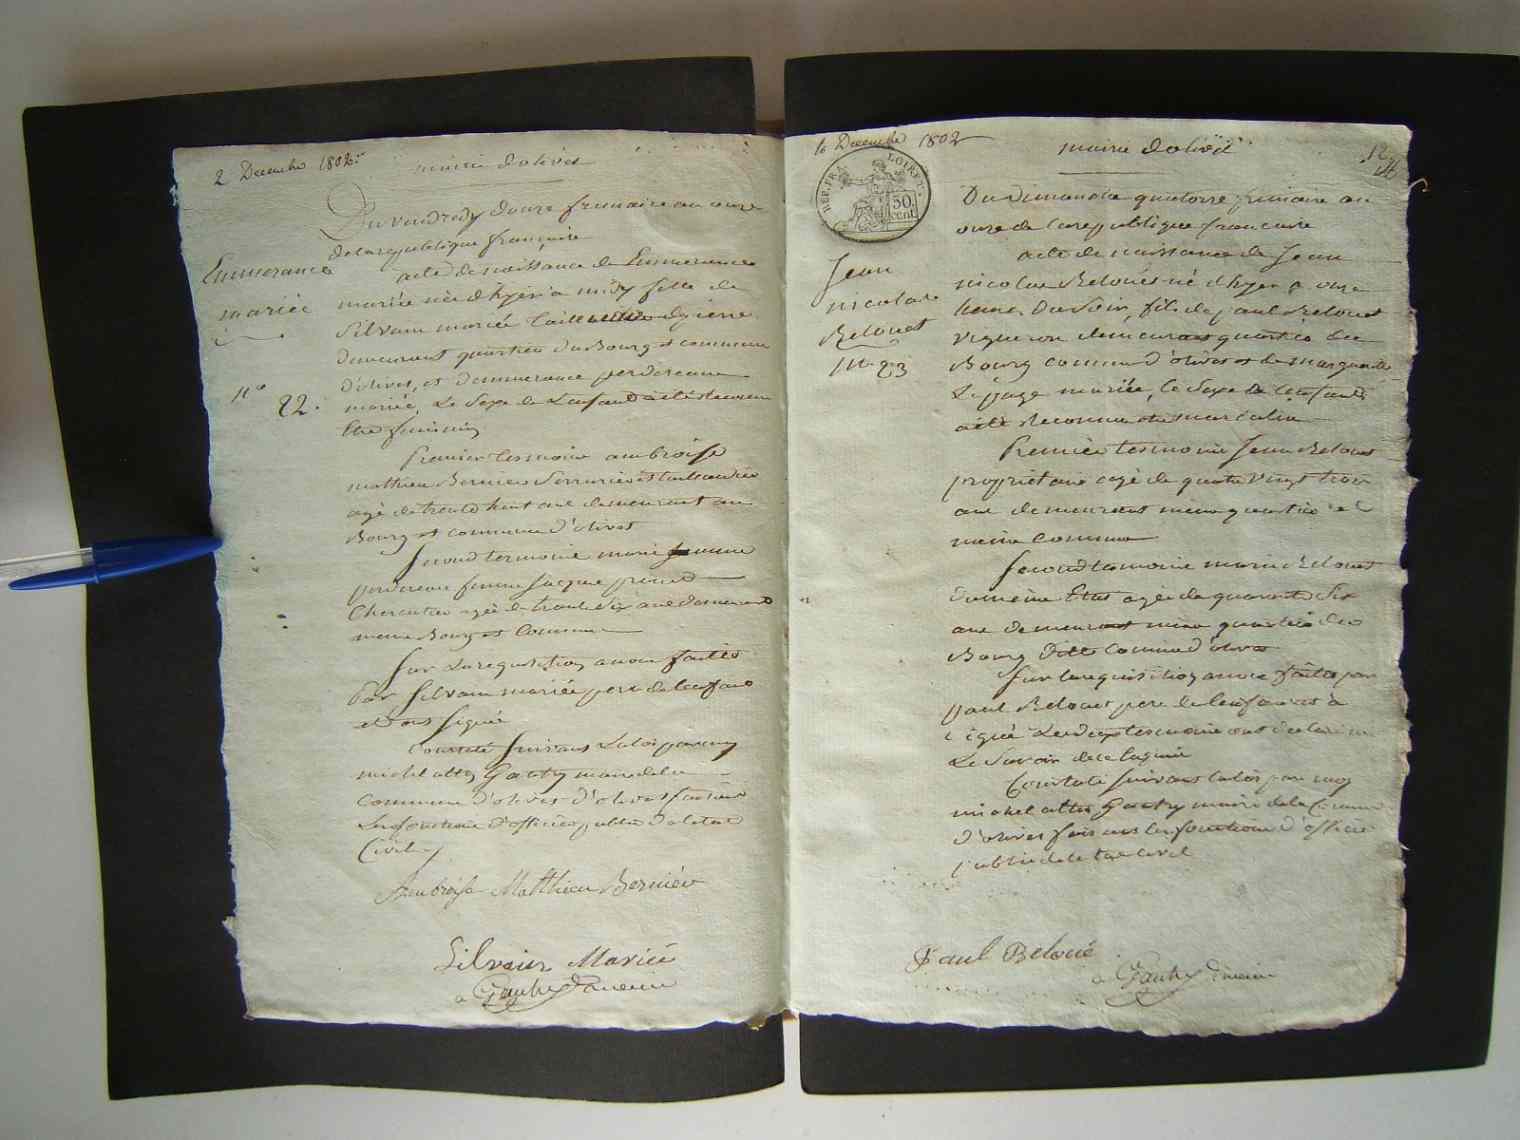 2 Decembre 1802
mairie d'olivet
Du vendredy douze frimaire an onze
de la republique françoise
Emmerance
mariée
acte de naissance de Emmerance
mariée née d'hyer a midy fille de
Silvain mariée taill dypierre
demeurant quartier du Bourg et commune
d'olivet, et d'emmerance perdereau
n° 22.
mariée, Le Sexe de L'enfant a été reconnu
être feminin
premier tesmoin ambroise
mathieu Bernier Serrurier et
agé de trente huit ans demeurant au
Bourg et commune d'olivet
Second tesmoin marie anne
perdereau femme Jacque
Charcutier agée de trente Six ans demeurant
meme Bourg et Commune
Sur La requisition a nous faitte
Par Silvain mariée pere de L'enfant
et ont Signée
Constaté Suivant La loi par moy
michel Gautry maire de la
Commune d'olivet d'olivet faisant
Les fonctions d'officier public de l'etat
Civil
Ambroise Matthieu Bernier
Silvain Mariée
Gautry maire
16 Decembre 1802
mairie d'olivet
REP. FRA. LOIRET.
50. cent
Du dimanche quatorze frimaire an
onze de la republique francaise
Jean
nicolas
Belouet
n° 23
acte de naissance de Jean
nicolas Belouet né d'hyer a onze
heures du Soir, fils de paul Belouet
vigneron demeurant quartier du
Bourg commune d'olivet et de marguerite
Lepage mariée, le Sexe de l'enfant
a été Reconnu etre masculin
Premier tesmoin Jean Belouet
proprietaire agé de quatre vingt trois
ans demeurant meme quartier et
meme commune
Second tesmoin marie Belouet
du meme Etat agée de quarante Six
ans demeurant meme quartier du
Bourg ditte Commune d'olivet
Sur la requisition a nous faitte par
paul Belouet pere de l'enfant a
Signée Les deux tesmoins ont declaré ne
Le Savoir de ce Enquis
Constaté Suivant la loi par moy
michel Gautry maire de la Commune
d'olivet faisant les fonctions d'officier
public de l'etat civil
Paul Beloué
Gautry maire